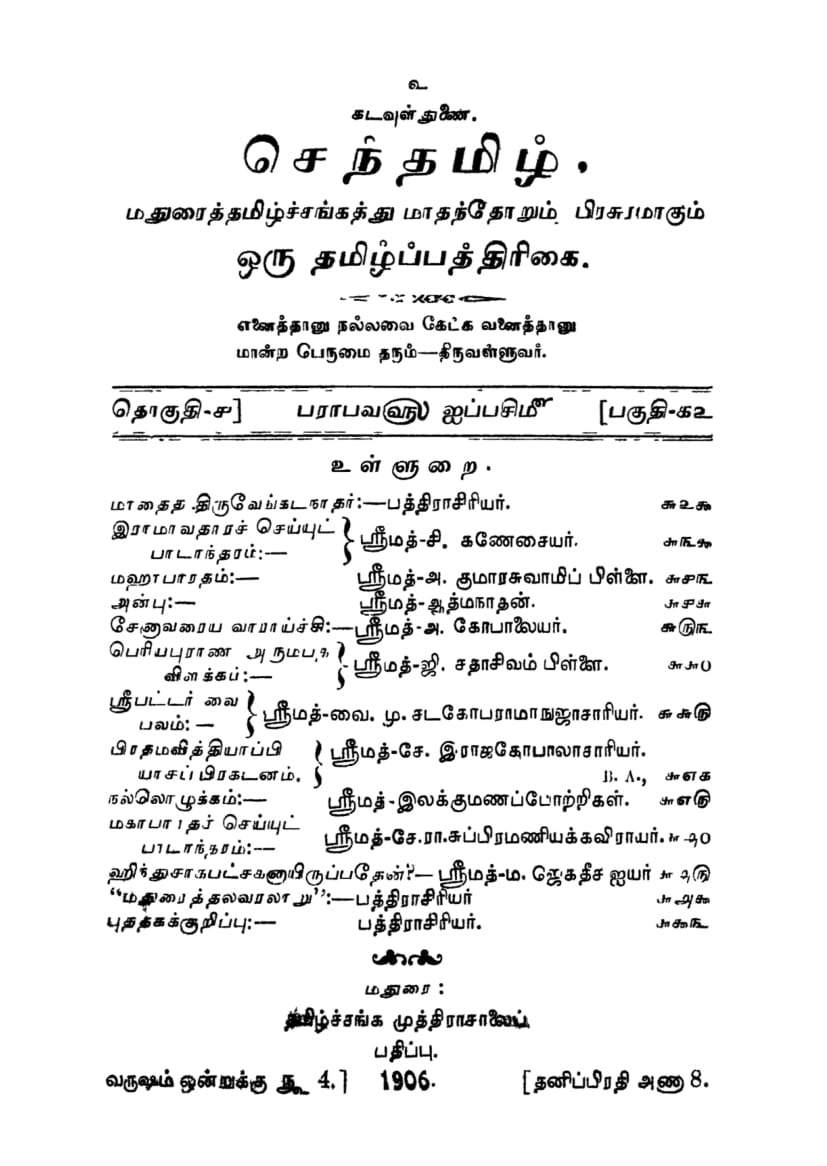 ௨
கடவுள் துணை.
செந்தமிழ்.
மதுரைத்தமிழ்ச்சங்கத்து மாதந்தோறும் பிரசுரமாகும்
ஒரு தமிழ்ப்பத்திரிகை.
எனைத்தானு நல்லவை கேட்க வனைத்தானு
மான்ற பெருமை தரும்—திருவள்ளுவர்.
தொகுதி-௪] பராபவ௵ ஐப்பசி௴ [பகுதி-௧௨
உள்ளுறை.
மாதைத் திருவேங்கடநாதர்:—பத்திராசிரியர். ௬௨௯
இராமாவதாரச் செய்யுட்
பாடாந்தரம்:— } ஸ்ரீமத்-சி. கணேசையர். ௬௩௯
மஹாபாரதம்:— ஸ்ரீமத்-அ. குமாரசுவாமிப் பிள்ளை. ௬௪௩
அன்பு:— ஸ்ரீமத்-ஆத்மநாதன். ௬௪௬
சேனாவரைய வாராய்ச்சி:—ஸ்ரீமத்-அ. கோபாலையர். ௬௫௩
பெரியபுராண அரும்பத
விளக்கம்:— } ஸ்ரீமத்-ஜி. சதாசிவம் பிள்ளை. ௬௬0
ஸ்ரீபட்டர் வை
பவம்:— } ஸ்ரீமத்-வை. மு. சடகோபராமாநுஜாசாரியர். ௬௬௫
பிரதமவித்தியாப்பி
யாசப் பிரகடனம். } ஸ்ரீமத்-சே. இராஜகோபாலாசாரியர்.
B. A., ௬௭௧
நல்லொழுக்கம்:— ஸ்ரீமத்-இலக்குமணப்போற்றிகள். ௬௭௫
மகாபாரதச் செய்யுட்
பாடாந்தரம்:— ஸ்ரீமத்-சே.ரா.சுப்பிரமணியக்கவிராயர். ௬௮0
ஹிந்துசாகபட்சகனாயிருப்பதேன்?—ஸ்ரீமத்-ம. ஜெகதீச ஐயர் ௬௮௫
“மதுரைத்தலவரலாறு”:—பத்திராசிரியர் ௬௮௯
புத்தகக்குறிப்பு:— பத்திராசிரியர். ௬௯௩
மதுரை:
தமிழ்ச்சங்க முத்திராசாலைப்
பதிப்பு.
வருஷம் ஒன்றுக்கு ரூ 4.] 1906. [தனிப்பிரதி அணா 8.